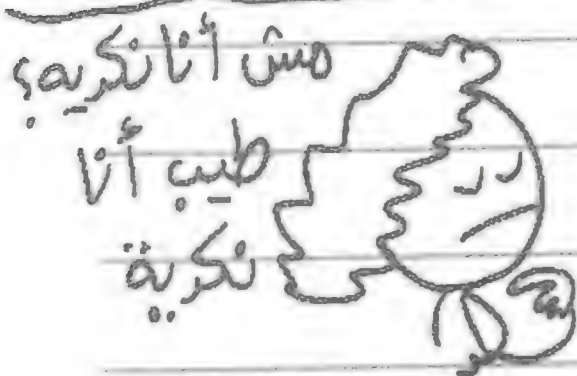 مش أنا نكرية؟
طيب أنا
نكرية